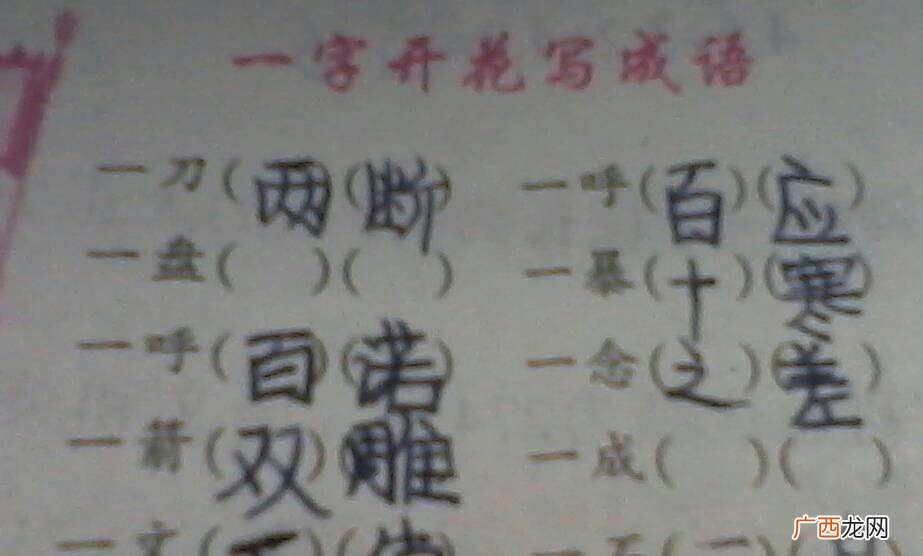 一字开花写成语
一刀(两)(断) 一呼(百)(应)
一盘( )( ) 一暴(十)(寒)
一呼(百)(诺) 一念(之)(差)
一箭(双)(雕) 一成( )( )
一文(
广西龙网